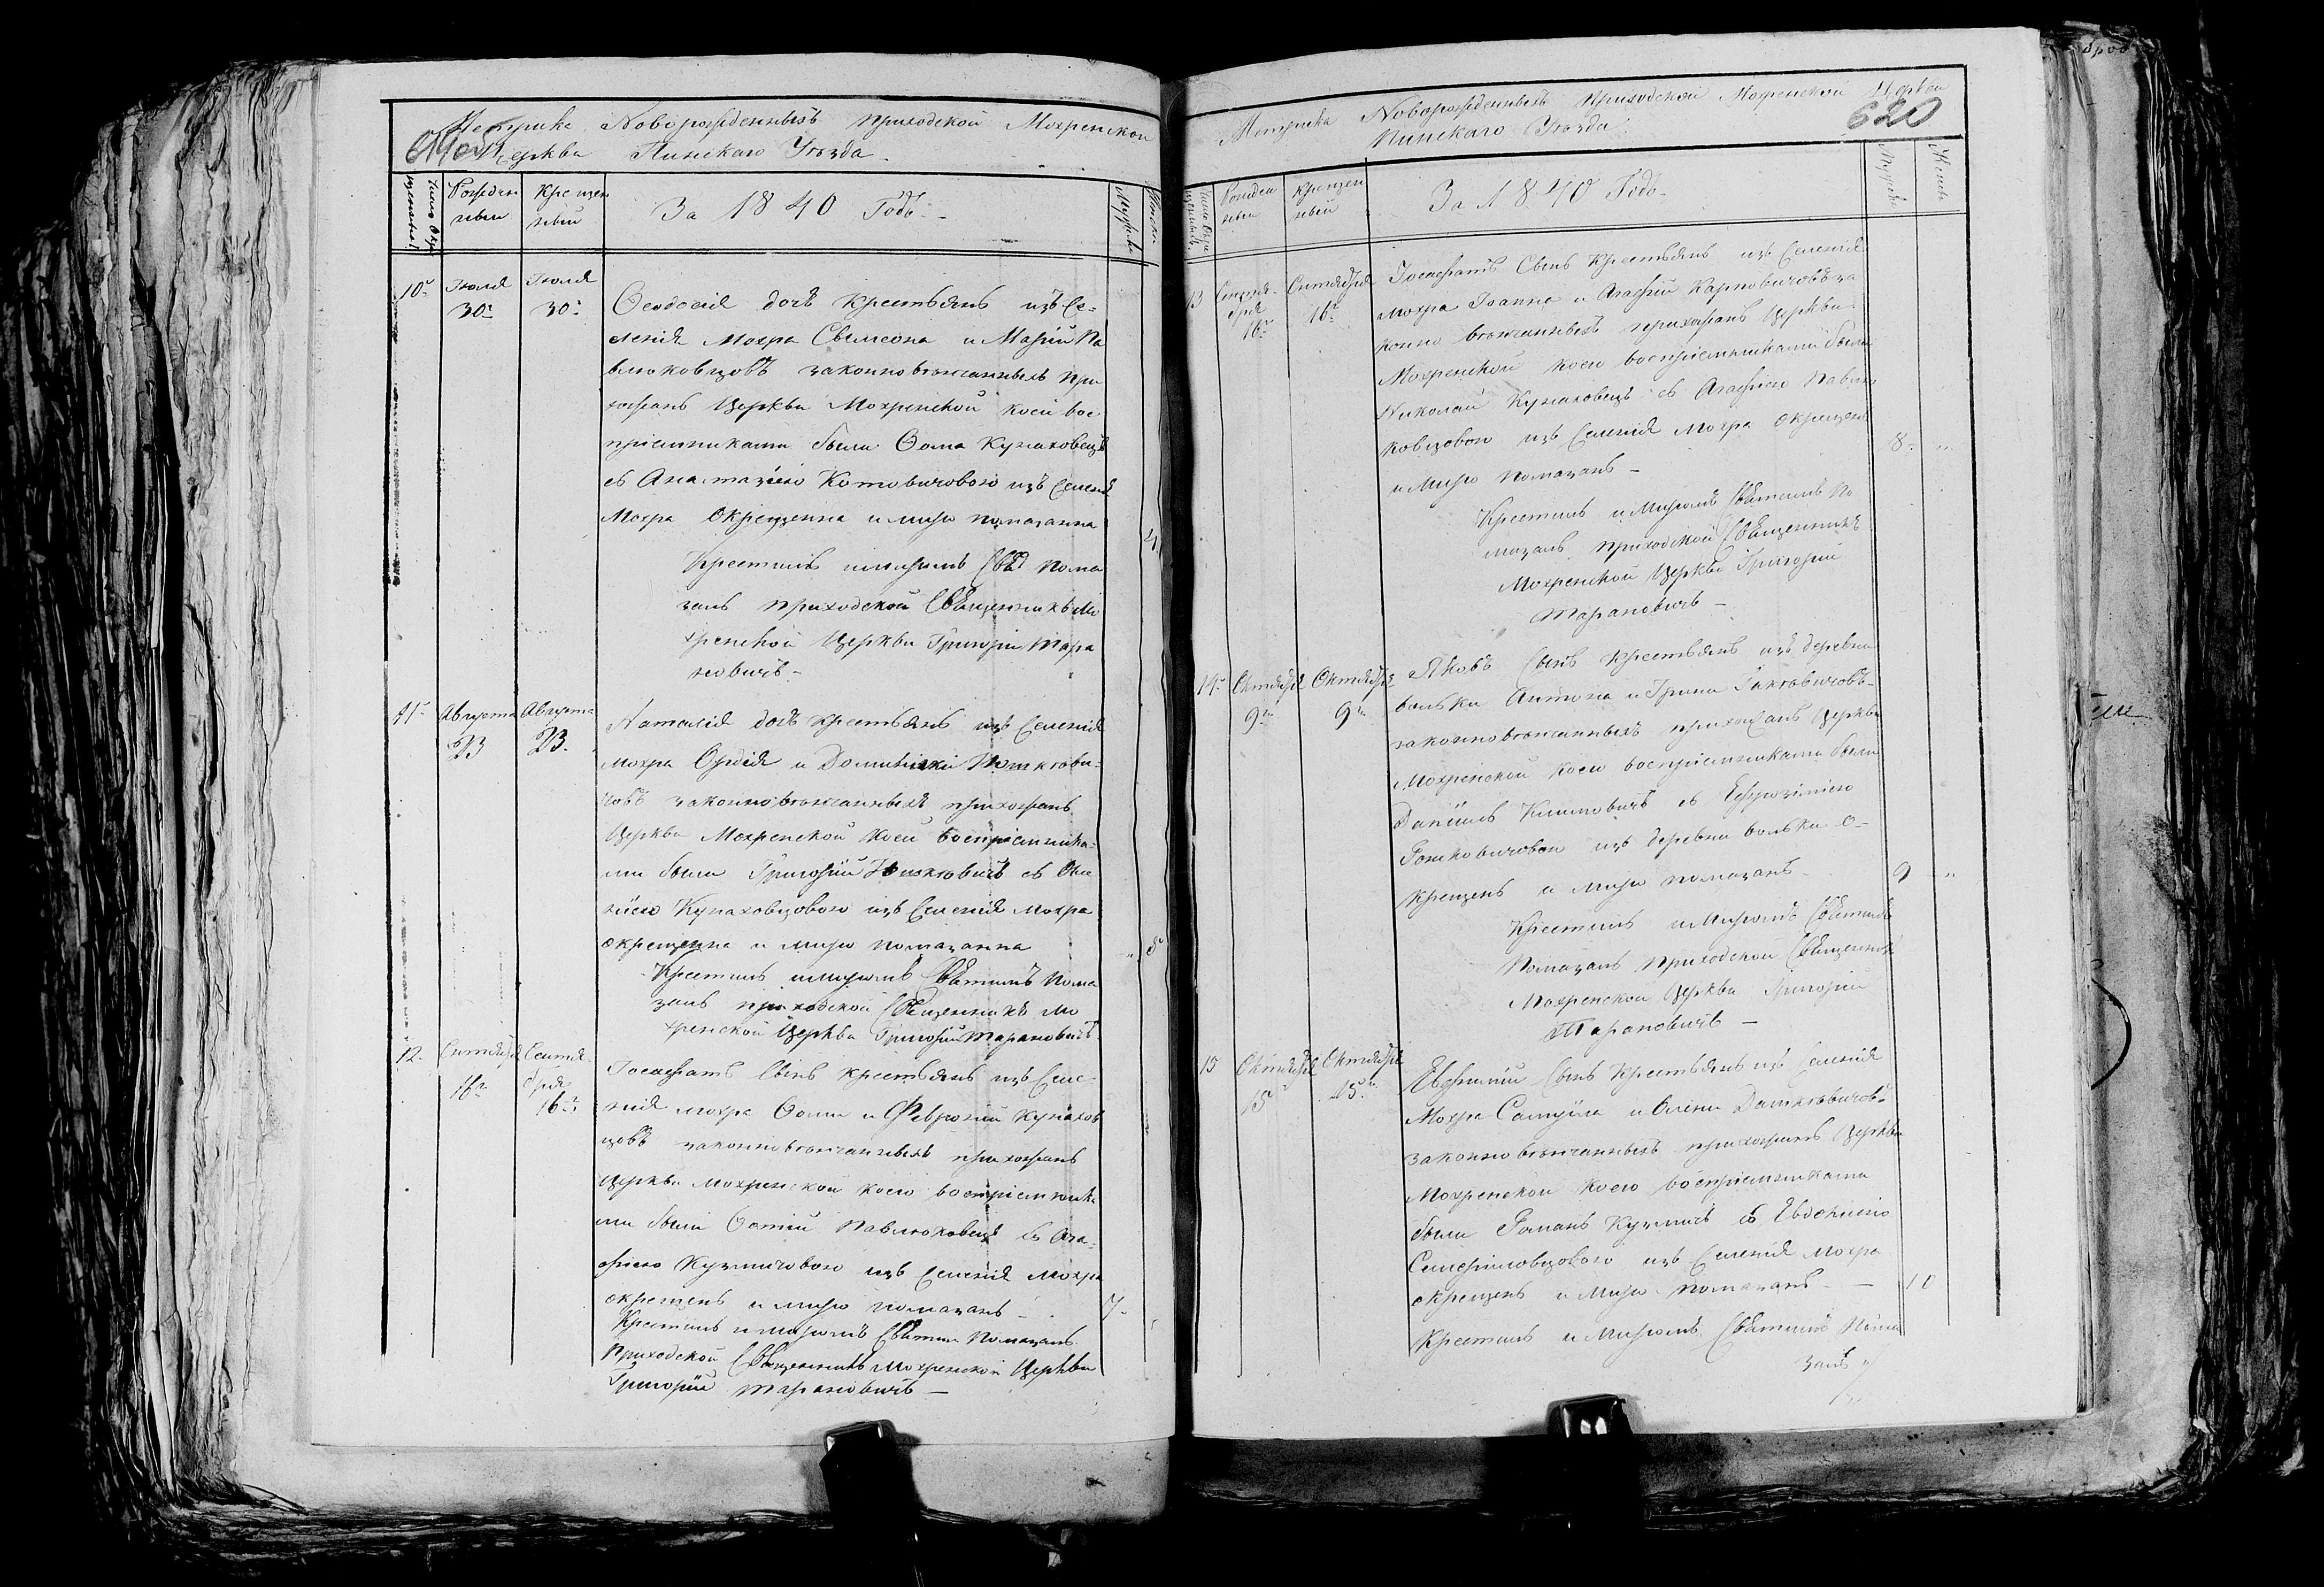 Метрика Новорожденныхъ приходской Мохренской
Церкви Пинскаго Уѣзда
Число окрещенныхъ
Рожденные
Крещенные
За 1840 Годъ
Мужеска
Женска
10
Іюля
30
Іюля
30
Ѳеодосія дочь крестьянъ изъ Се-
ленія Мохра Сѵмеона и Маріи Па
влюковцовъ законновѣнчанныхъ при
хожанъ Церкви Мохренской коей вос
пріемниками были Ѳома Кунаховецъ
съ Анастазіею Котовичовою изъ Селенія
Мохра Окрещенна и миро помазанна
4
Крестилъ и миромъ Свѣт пома
залъ приходской Священникъ Мо
хренской Церкви Григорій Тара
новичъ
11
Августа
23
Августа
23.
Наталія дочь крестьянъ изъ Селенія
Мохра Сергія и Доминикіи
човъ законновѣнчанныхъ прихожанъ
Церкви Мохренской коей воспріемника-
ми были Григорій съ
Кунаховцовою изъ Селенія Мохра
окрещенна и миро помазанна
5
Крестилъ и миромъ Святымъ пома
залъ приходской Священникъ Мо
хренской Церкви Григорій Тарановичъ
12
Сентября
16
Сентя-
бря
16
Іосафатъ Сынъ крестьянъ изъ Селе-
нія Мохра Ѳомы и Февроніи Кунахов
цовъ законновѣнчанныхъ прихожанъ
Церкви Мохренской коего воспріемника
ми были Павлюковецъ съ Ага-
фіею Кузмичовою изъ Селенія Мохра
окрещенъ и миро помазанъ
7
Крестилъ и миромъ Святымъ помазалъ
Приходской Священникъ Мохренской Церкви
Григорій Тарановичъ
Метрика Новорожденныхъ приходской Мохренской Церкви
Пинскаго Уѣзда
620
Число окрещенныхъ
Рожденные
Крещенные
За 1840 Годъ
Мужеска
Женска
13
Сентя-
бря
16
Сентября
16
Іосафатъ Сынъ Крестьянъ изъ Селенія
Мохра Іоанна и Агафіи Карповичовъ за
конно вѣнчанныхъ прихожанъ Церкви
Мохренской коего воспріемниками были
Николай Кунаховецъ съ Агафіею Павлю
ковцовою изъ Селенія Мохра Окрещенъ
и Миро помазанъ
8
Крестилъ и Миромъ Святымъ по
мазалъ приходской Священникъ
Мохренской Церкви Григорій
Тарановичъ
14
Октября
9
Октября
9
Яковъ Сынъ крестьянъ изъ деревни
вольки Антона и Ирины
законновѣнчанныхъ прихожанъ Церкви
Мохренской коего воспріемниками были
Даніилъ Климовичъ съ Ефрозиніею
изъ деревни вольки о-
крещенъ и Миро помазанъ
9
Крестилъ и Миромъ Святымъ
Помазалъ приходской Священникъ
Мохренской Церкви Григорій
Тарановичъ
15
Октября
15
Октября
15
Евфимій Сынъ Крестьянъ изъ Селенія
Мохра Самуила и Елены
законно вѣнчанныхъ прихожанъ Церкви
Мохренской коего воспріемниками
были Романъ Кузмичъ съ Евдокіею
изъ Селенія Мохра
окрещенъ и Миро помазанъ
10
Крестилъ и Миромъ Святымъ Пома
залъ